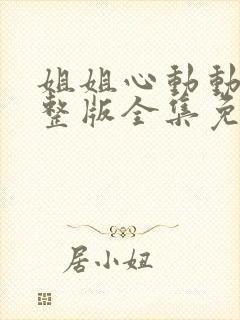 姐姐心動動
整版全集免
居小姐